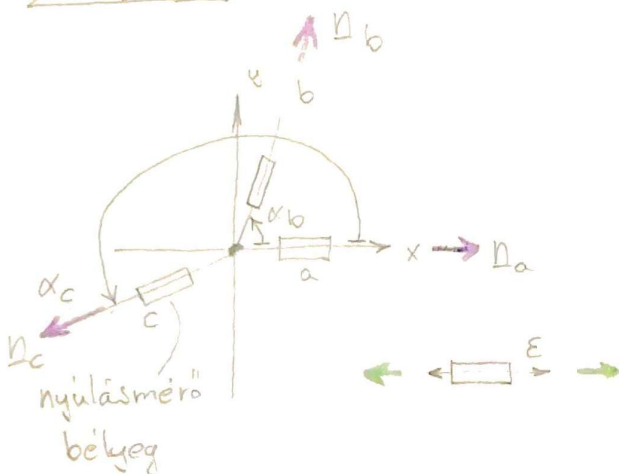 n b
b
y
αb
x
na
a
αc
c
nc
ε
nyúlásmérő
bélyeg